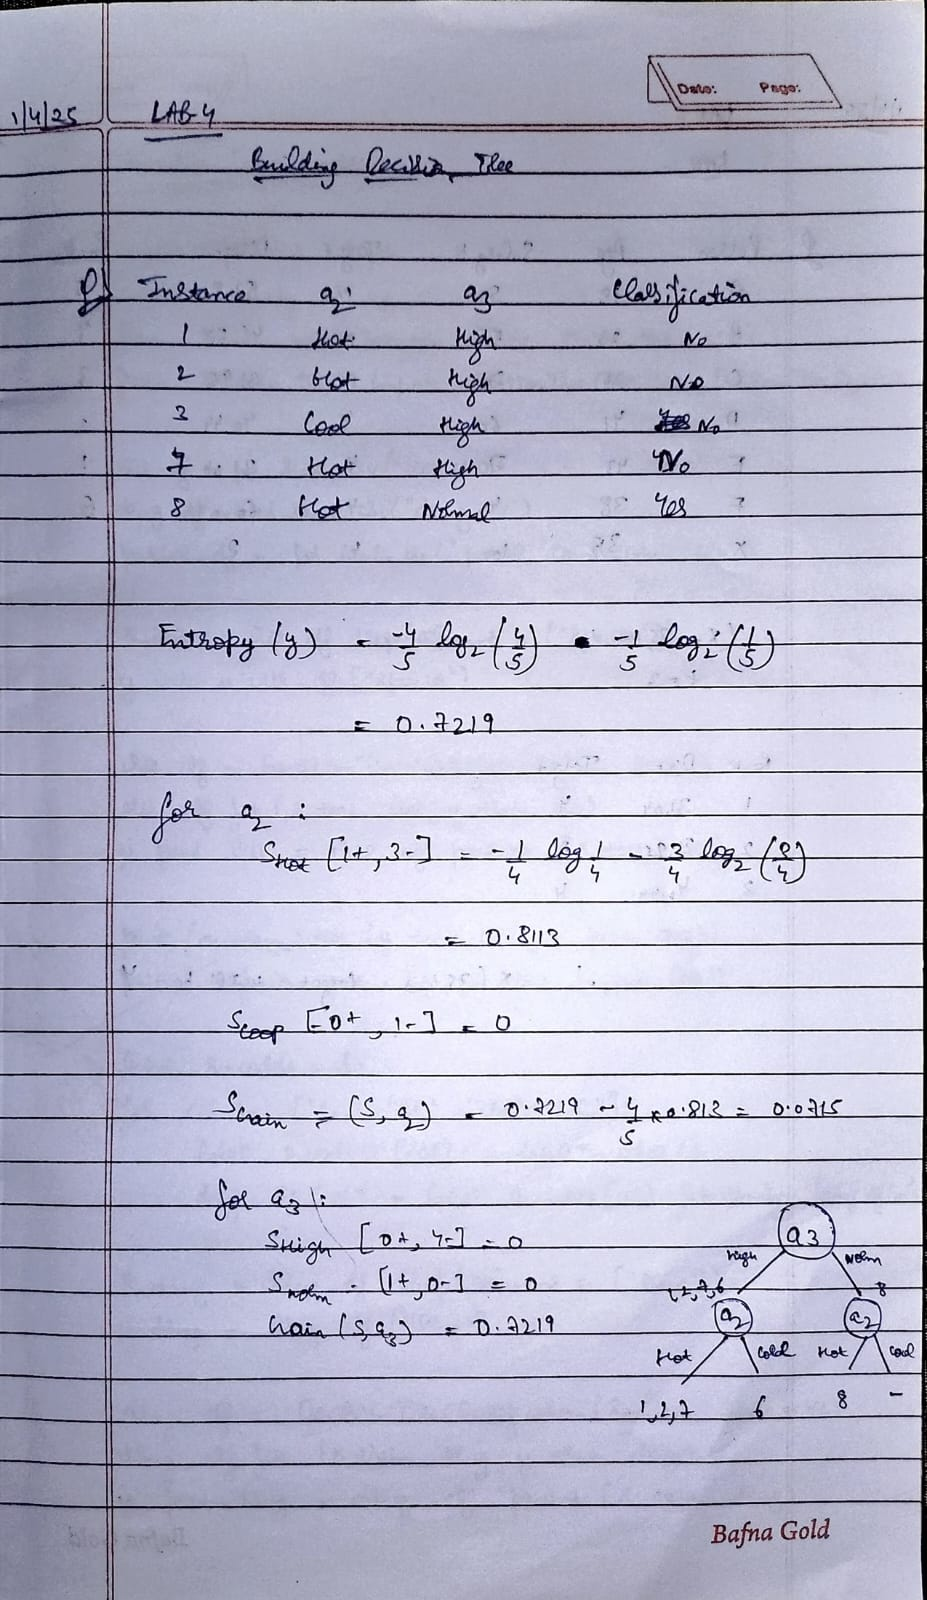 Date: Page:
1/4/25 LAB-4
Building Decision Tree
Q) Instance a2 a3 Classification
1 Hot High No
2 Hot High No
3 Cool High No
7 Hot High No
8 Hot Normal Yes
Entropy (y) = -4/5 log2 (4/5) - 1/5 log2 (1/5)
= 0.7219
for a2 :
SHot [1+, 3-] = -1/4 log 1/4 - 3/4 log2 (3/4)
= 0.8113
Scoop [-0+, 1-] = 0
SGain = (S, a2) = 0.7219 - 4/5 x 0.813 = 0.0715
for a3 :
SHigh [0+, 4-] = 0
Snorm - [1+, 0-] = 0
Gain (S, a3) = 0.7219
a3
high Norm
1,2,7,6 8
a2 a2
Hot Cold Hot Cool
1,2,7 6 8 -
Bafna Gold